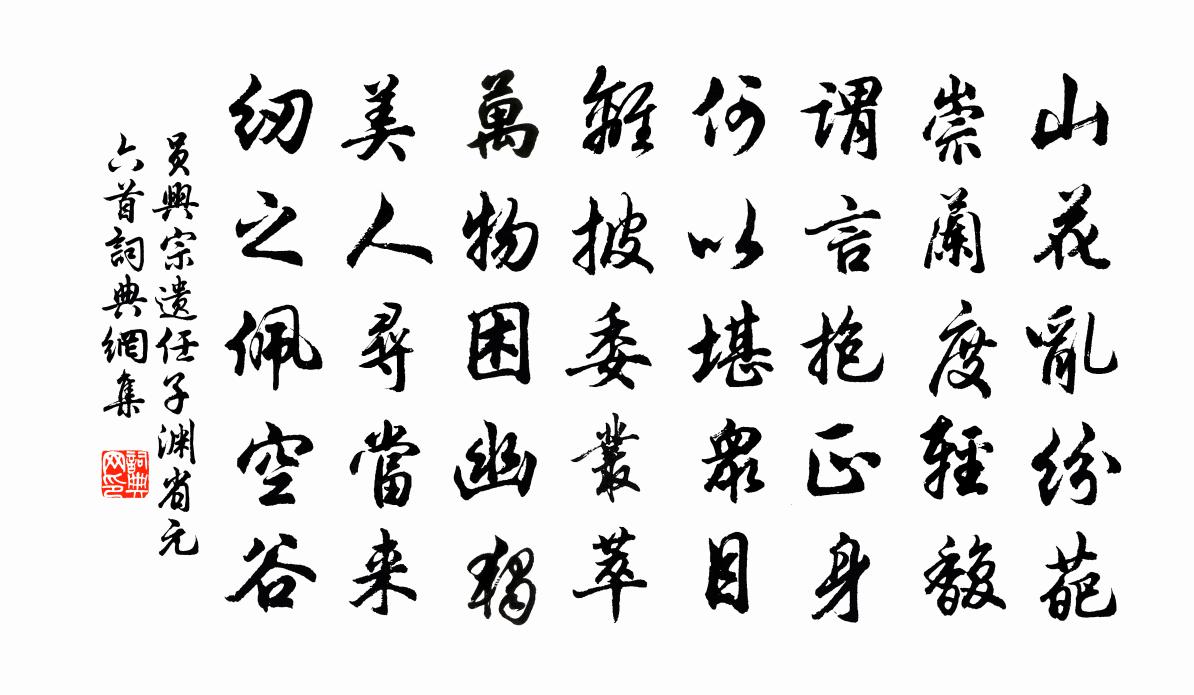 山花亂紛葩
崇蘭度輕馥
謂言抱正身
何以堪衆目
雜披委叢萃
萬物困幽獨
美人尋當来
紉之佩空谷
員興宗遺任子渊省元
六首詞典網集
詞典网印